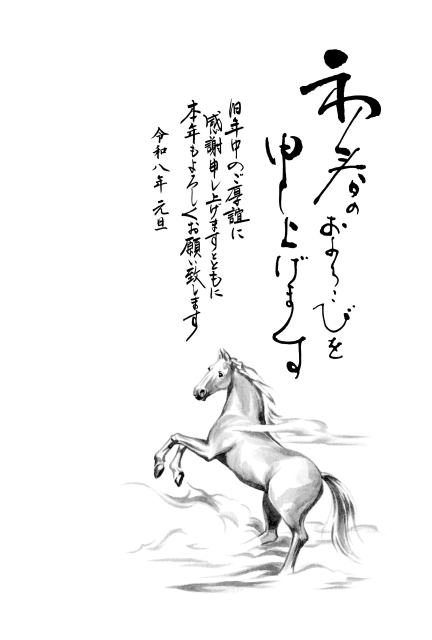 初春のおよろこびを
申し上げます
旧年中のご厚誼に
感謝申し上げますとともに
本年もよろしくお願い致します
令和八年 元旦